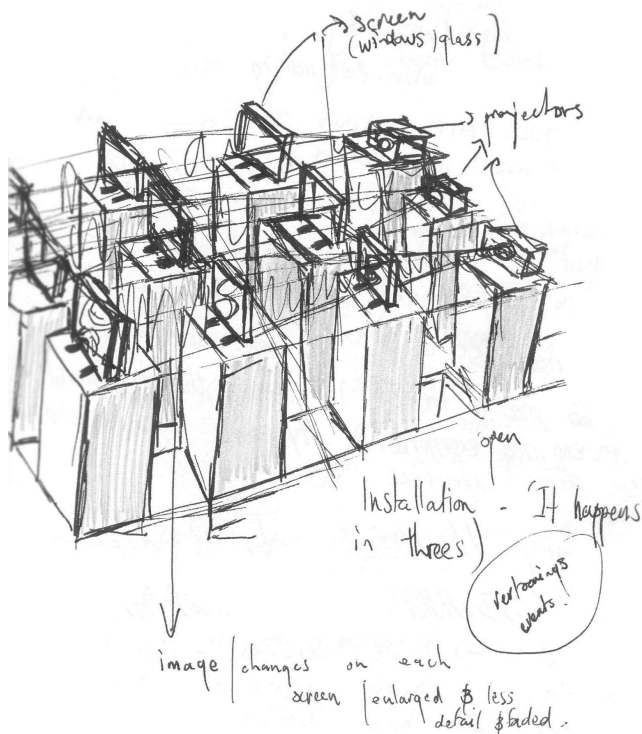 screen
(windows/glass)
projectors
open
Installation - 'It happens
in threes'
vertonings
events.
image | changes on each
screen | enlarged & less
detail & faded.